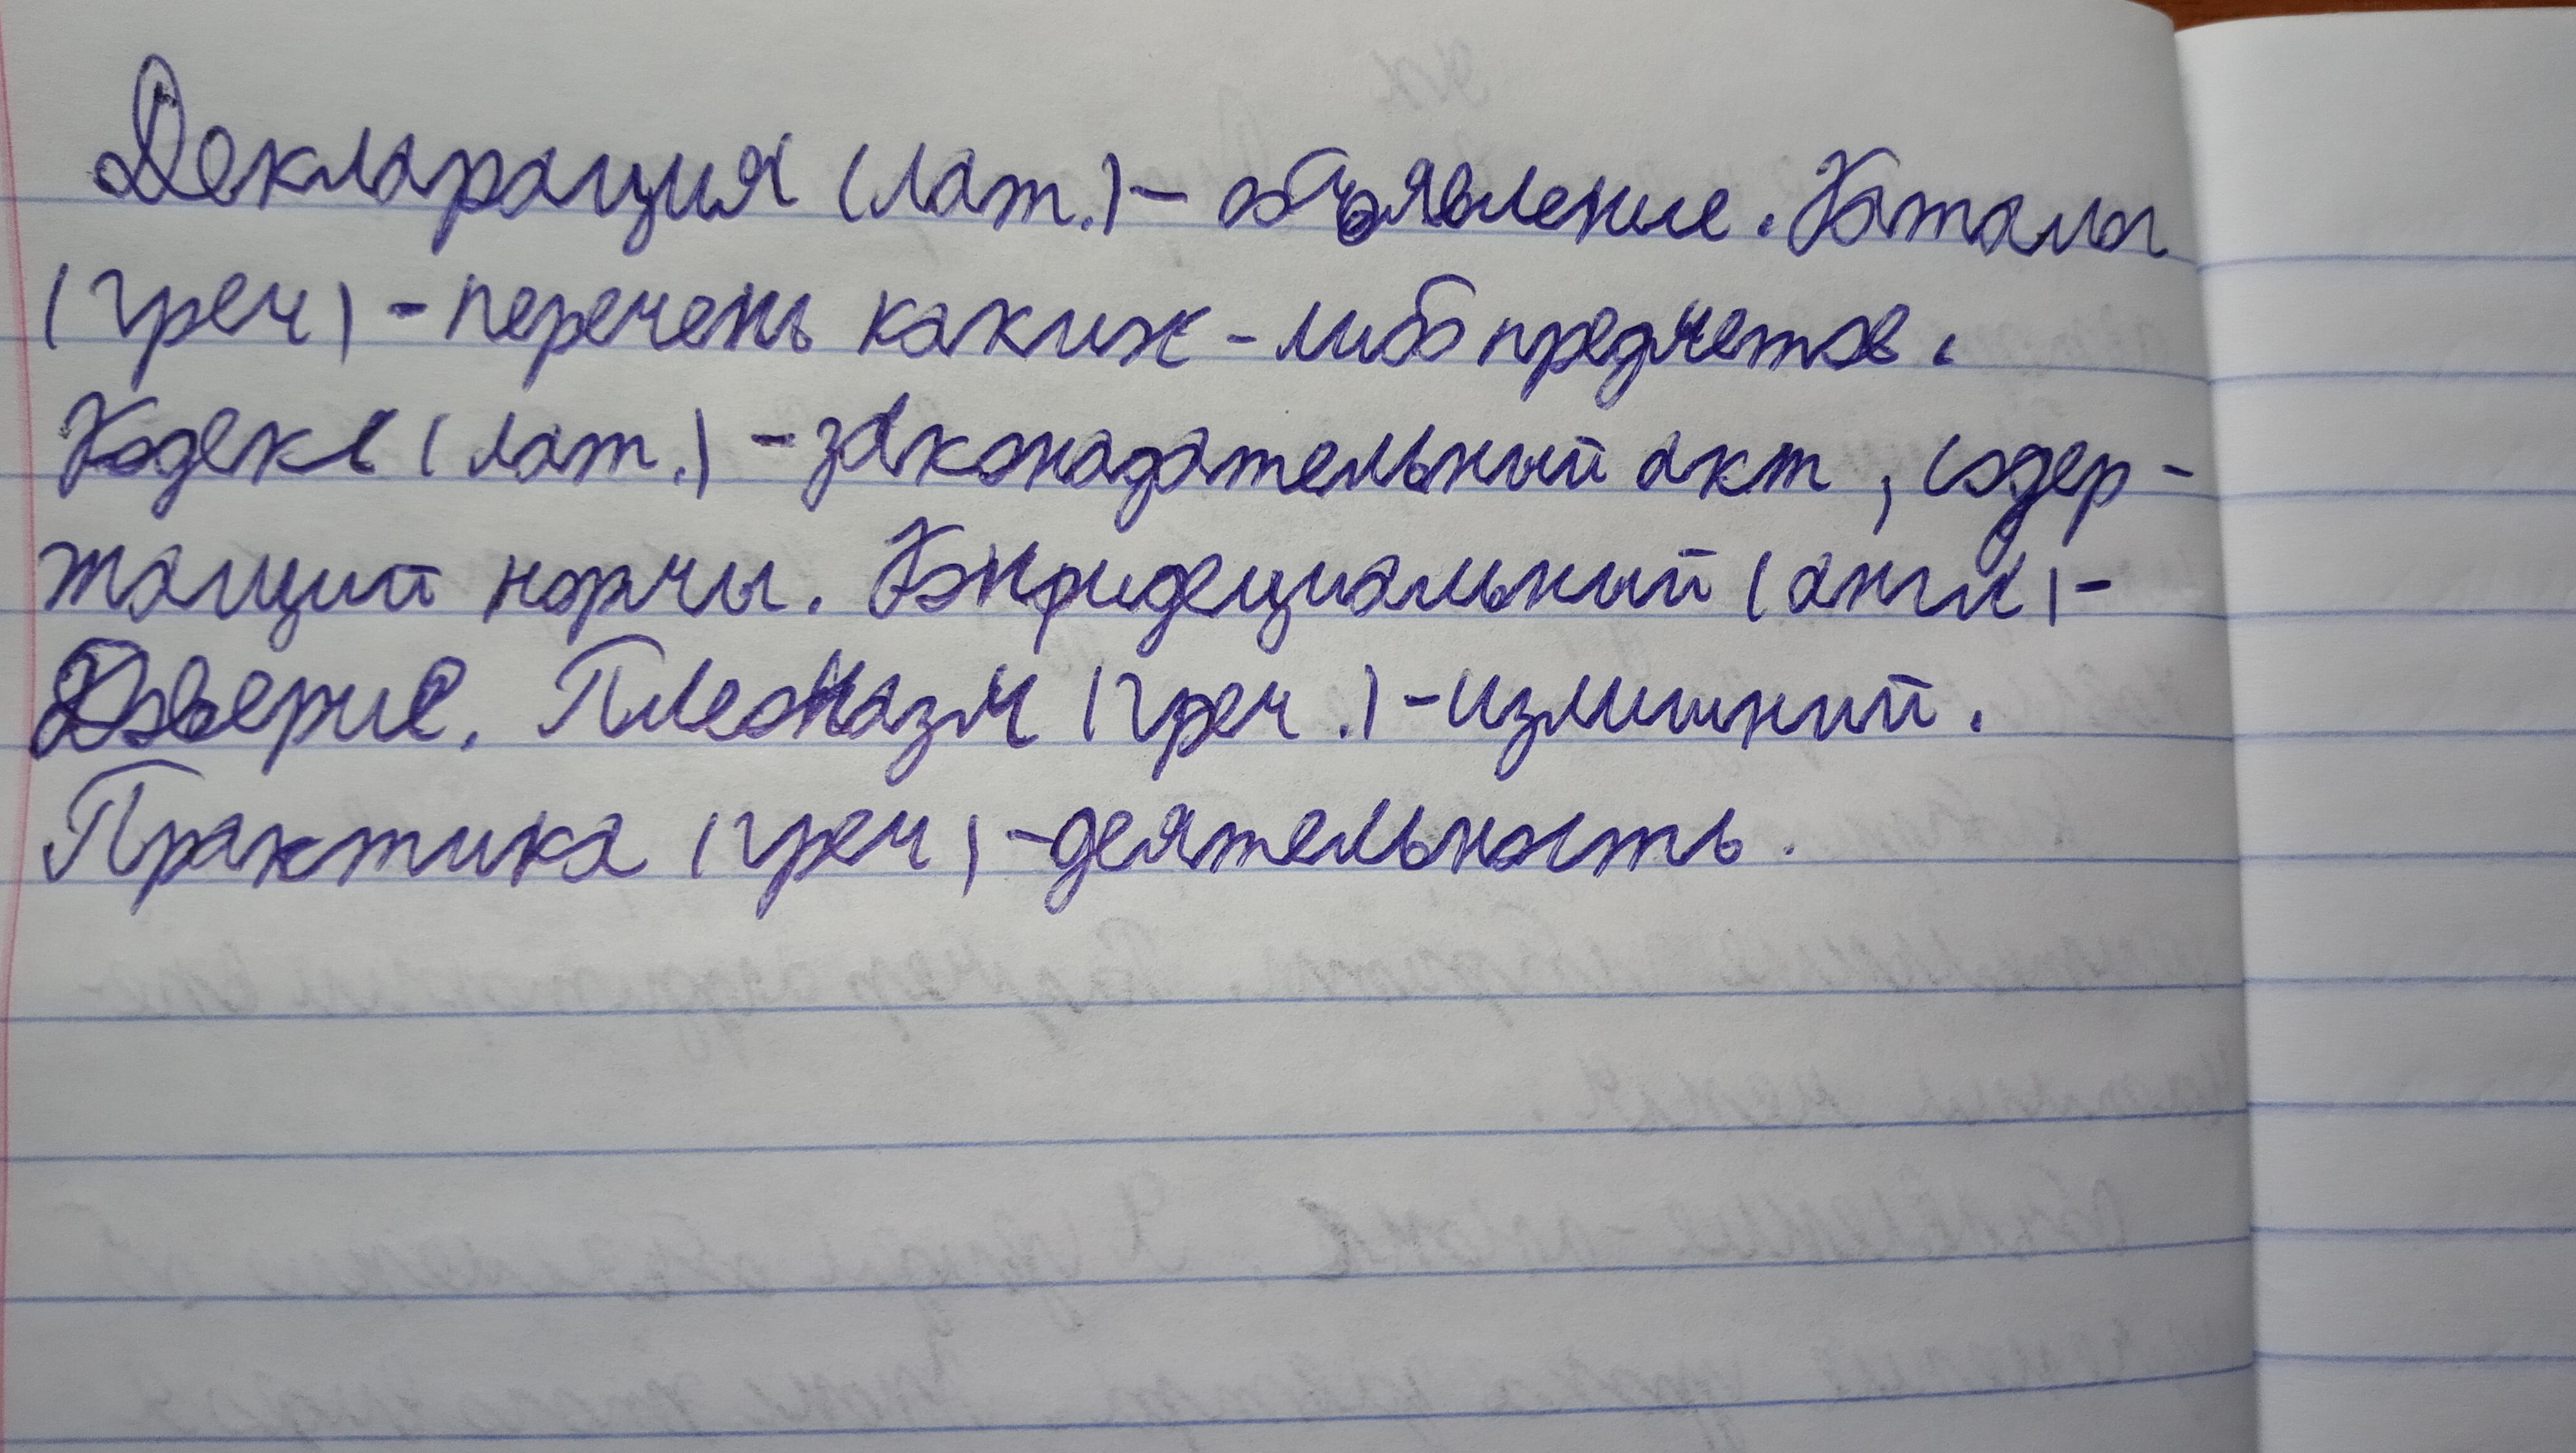 Декларация (лат.) – объявление. Каталог
(греч) – перечень каких-либо предметов.
Кодекс (лат.) – законадательный акт, содер-
жащий нормы. Конфидециальный (англ) –
Доверие. Плеоназм (греч.) – излишний.
Практика (греч) – деятельность.